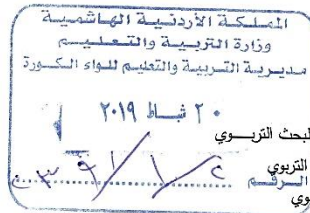 المملكة الأردنية الهاشمية
وزارة التربية والتعليم
مديرية التربية والتعليم للواء الكورة
٢٠ شباط ٢٠١٩
لبحث التربوي
التربوي
الرقم
وي